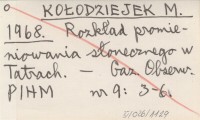 KOŁODZIEJEK M.
1968. Rozkład promie-
niowania słonecznego w
Tatrach. — Gaz. Obserw.
PIHM nr 9: 3-6.